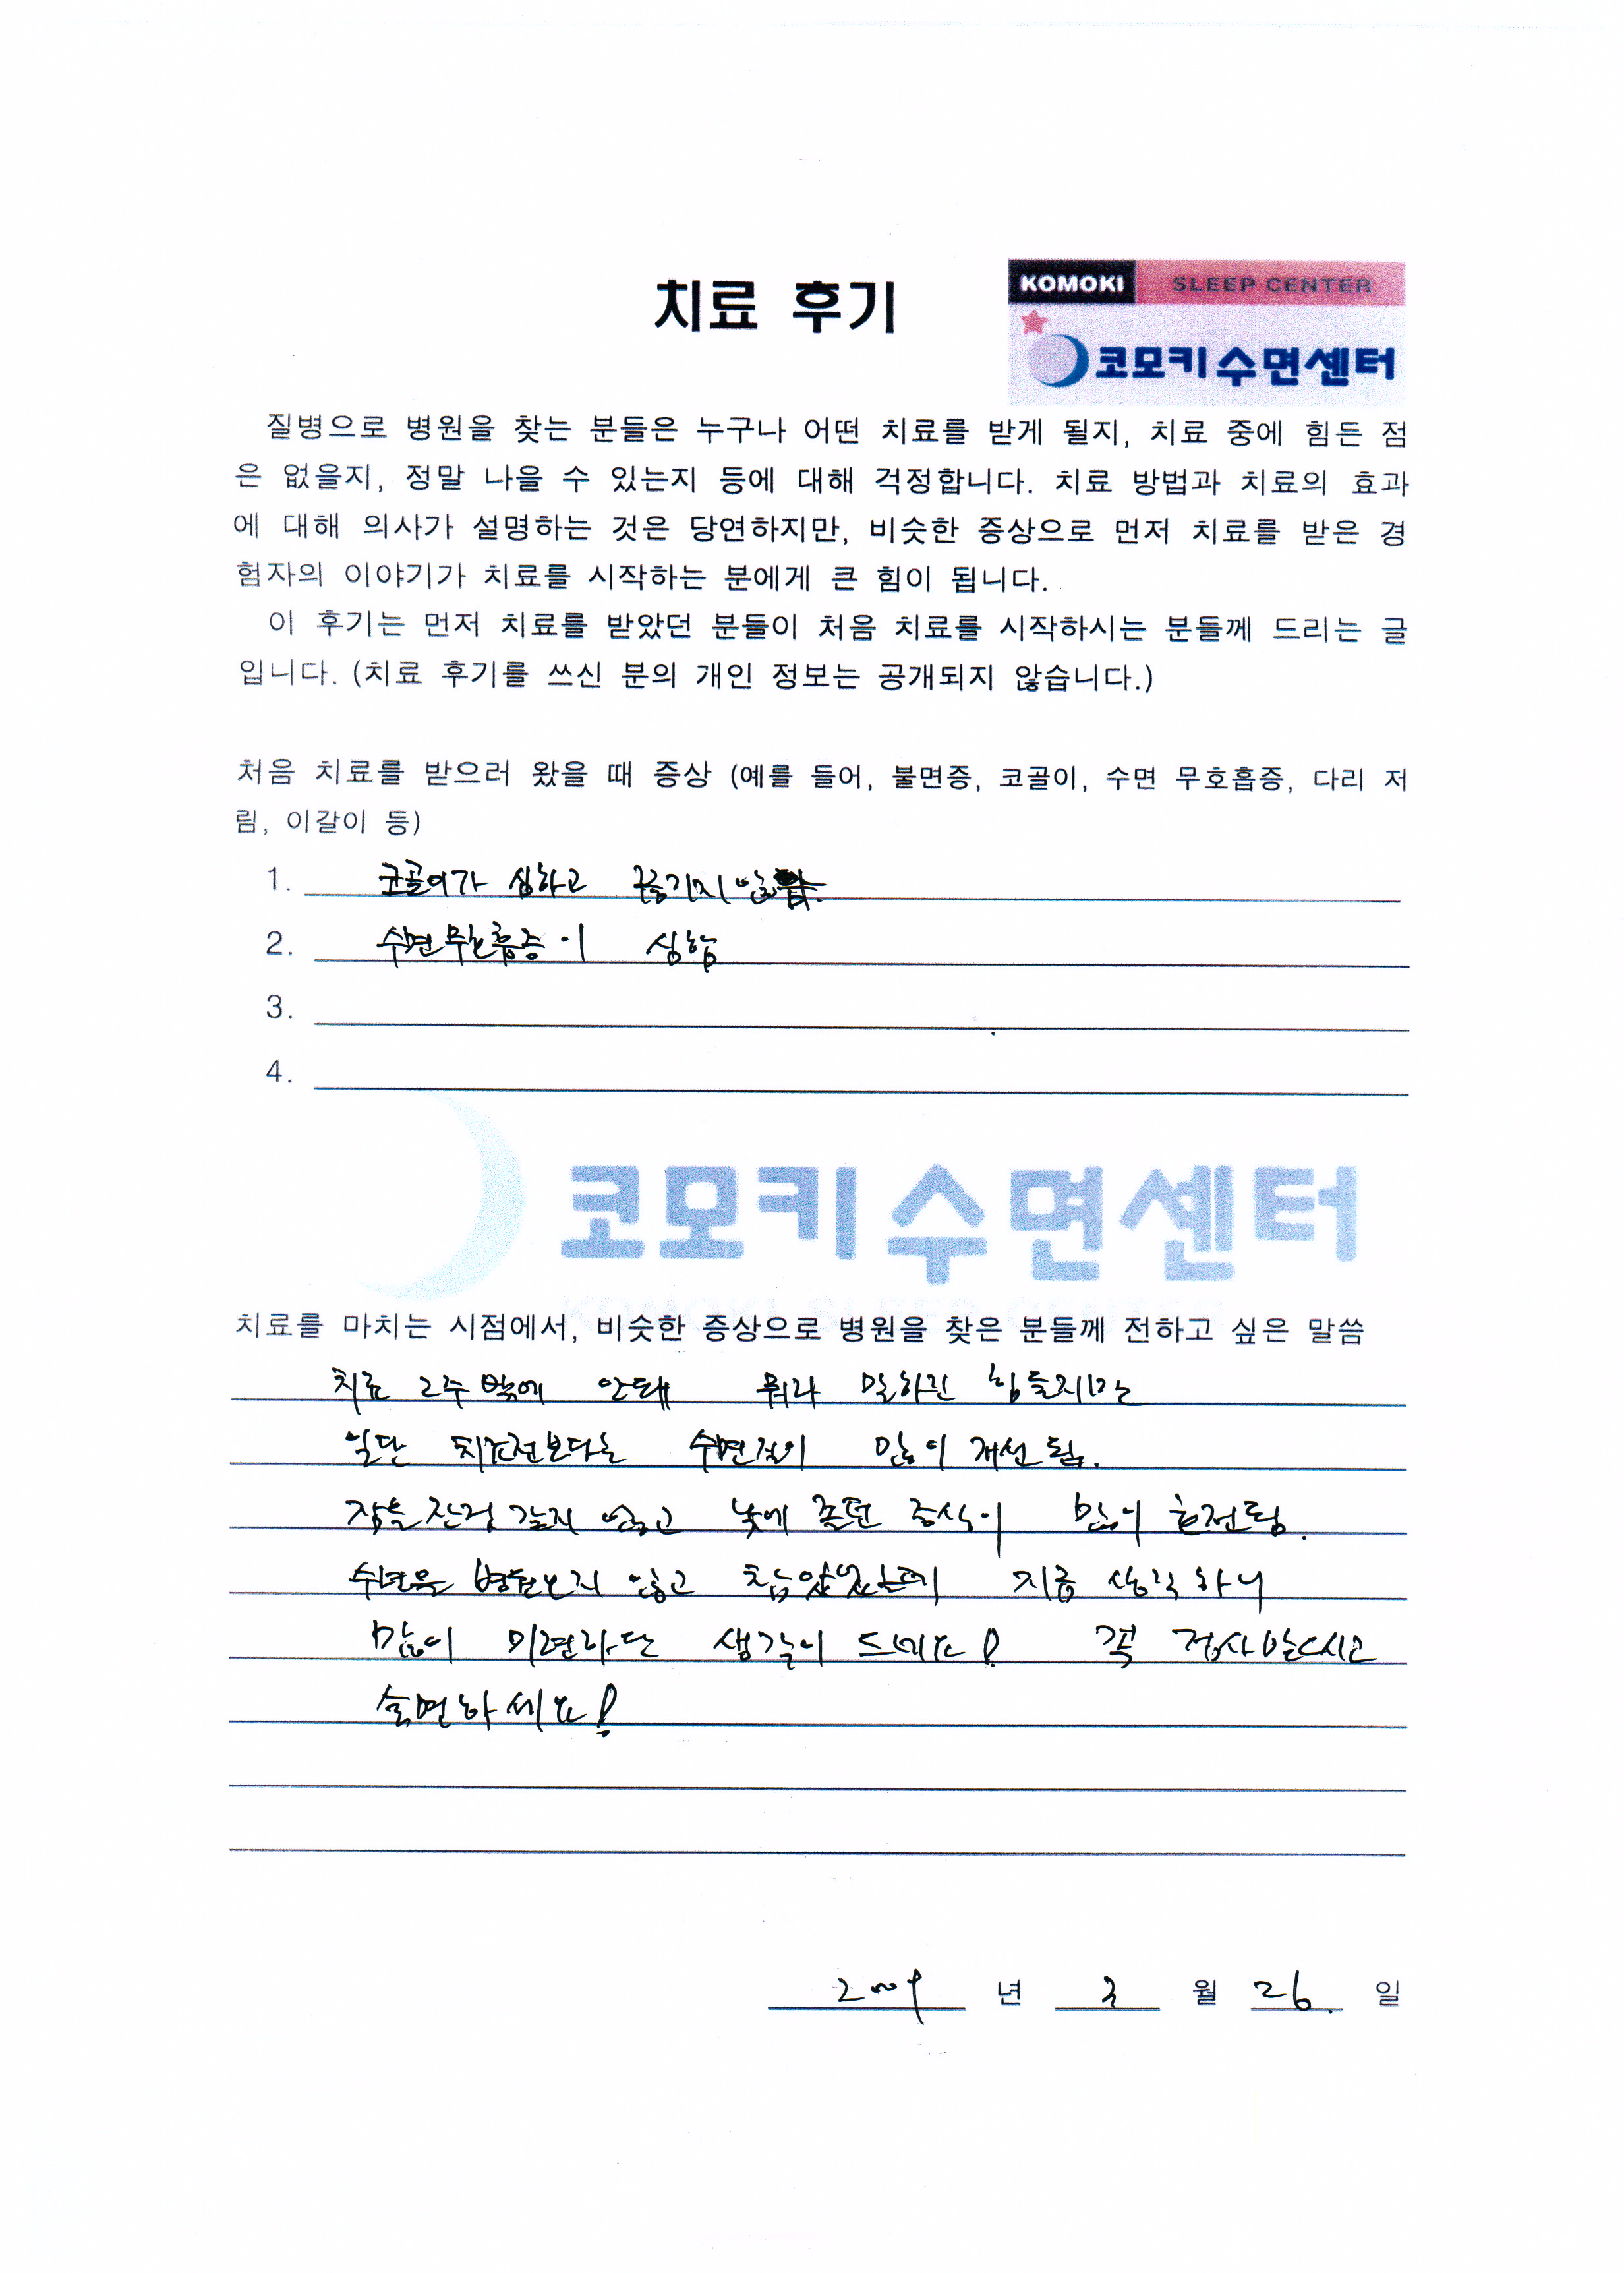 치료 후기
KOMOKI SLEEP CENTER
코모키수면센터
질병으로 병원을 찾는 분들은 누구나 어떤 치료를 받게 될지, 치료 중에 힘든 점
은 없을지, 정말 나을 수 있는지 등에 대해 걱정합니다. 치료 방법과 치료의 효과
에 대해 의사가 설명하는 것은 당연하지만, 비슷한 증상으로 먼저 치료를 받은 경
험자의 이야기가 치료를 시작하는 분에게 큰 힘이 됩니다.
이 후기는 먼저 치료를 받았던 분들이 처음 치료를 시작하시는 분들께 드리는 글
입니다. (치료 후기를 쓰신 분의 개인 정보는 공개되지 않습니다.)
처음 치료를 받으러 왔을 때 증상 (예를 들어, 불면증, 코골이, 수면 무호흡증, 다리 저
림, 이갈이 등)
1. 코골이가 심하고
2. 수면무호흡증이 심함
3.
4.
코모키수면센터
KOMOKI SLEEP CENTER
치료를 마치는 시점에서, 비슷한 증상으로 병원을 찾은 분들께 전하고 싶은 말씀
치료 2주밖에 안돼 뭐라 말하긴 힘들지만
일단 치료전보다는 수면질이 많이 개선됨.
잠을 잔것 같지 않고 낮에 졸던 증상이 많이 호전됨.
병원오지 않고 참았었는데 지금 생각하니
많이 미련하단 생각이 드네요! 꼭 검사받으시고
숙면하세요!
2009 년 3 월 26. 일